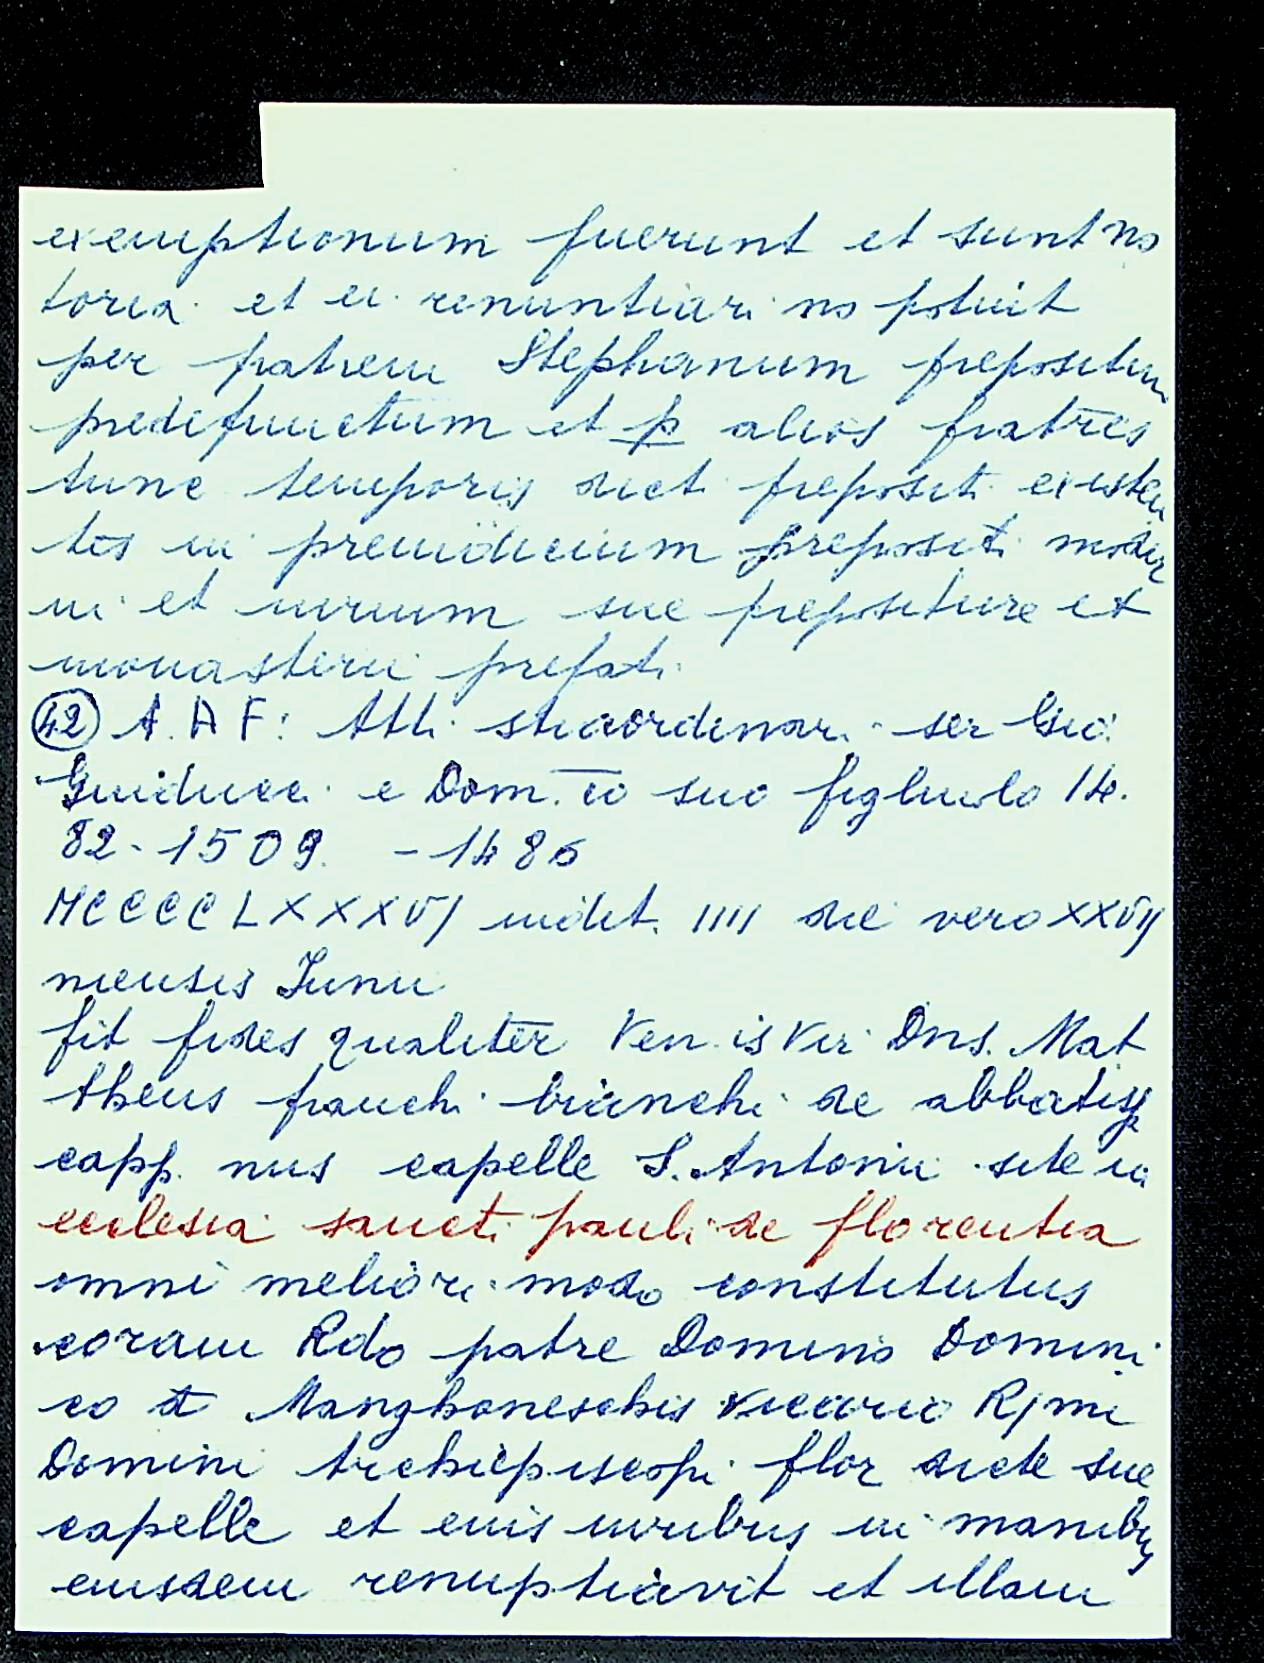 exemptionum fuerunt et sunt no
toria et ei renuntiari no potuit
per fratrem Stephanum prepositum
predefunctum et p alios fratres
tunc temporis dict. prepositi existen
tes in preiudicium prepositi moder
ni et iurium sue prepositure et
monasterii prefati
(42) A. A F: Atti straordinari - ser Gio:
Guiducci e Dom.co suo figliuolo 14.
82-1509. - 1486
MCCCCLXXXVI indict. IIII die vero XXVII
mensis Junii
fit fides qualiter Ven.is Vir Dns. Mat
theus franchi bianchi de abbatis
capp. nus capelle S. Antonii site in
ecclesia sancti pauli de florentia
omni meliori modo constitutus
coram Rdo patre Domino Domini
co d Manghoneschis vicario R/mi
Domini Archiepiscopi flor dicte sue
capelle et euis iuribus in manibus
eiusdem renuptiavit et illam